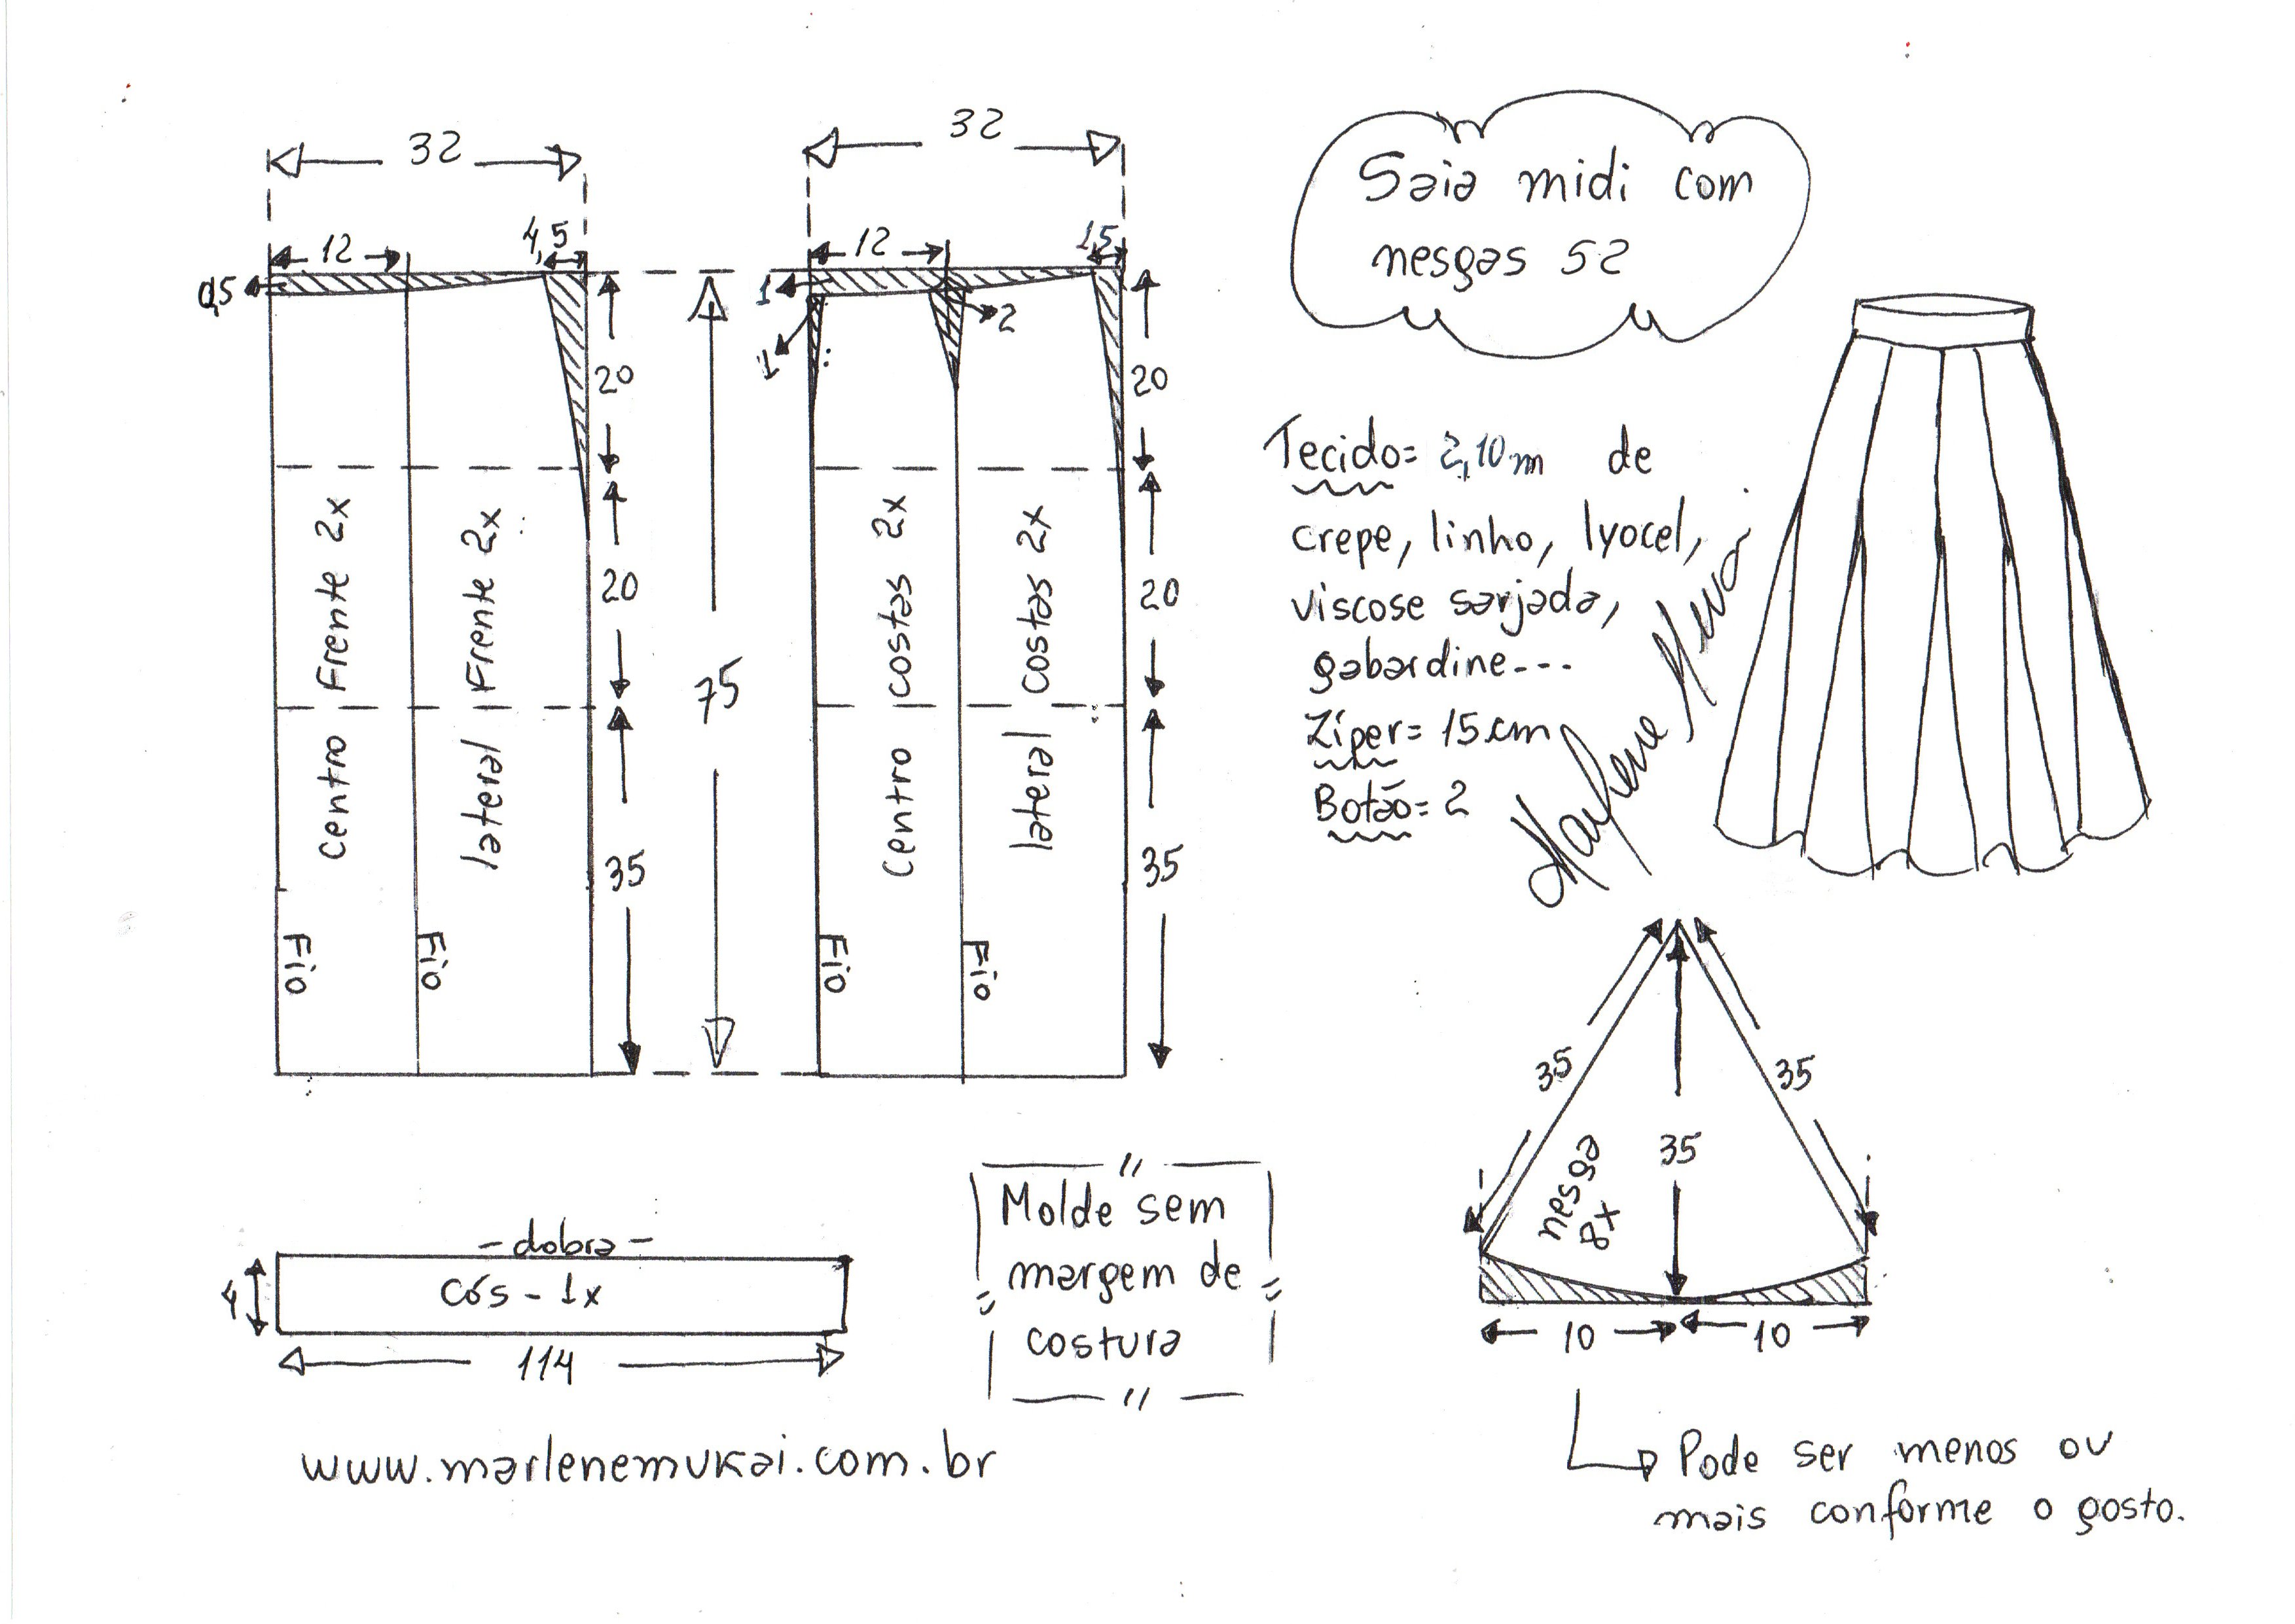 32
32
12
4,5
12
1,5
0,5
1
2
1
20
20
20
20
75
35
35
Centro Frente 2x
lateral Frente 2x
Centro costas 2x
lateral costas 2x
Fio
Fio
Fio
Fio
Saia midi com
nesgas 52
Tecido= 2,10m de
crepe, linho, lyocel,
viscose sarjada,
gabardine---
Zíper= 15cm
Botão= 2
Marlene Mukai
35
35
35
nesga
8x
10
10
Pode ser menos ou
mais conforme o gosto.
-dobra-
cós - 1x
4
114
Molde sem
margem de
costura
www.marlenemukai.com.br